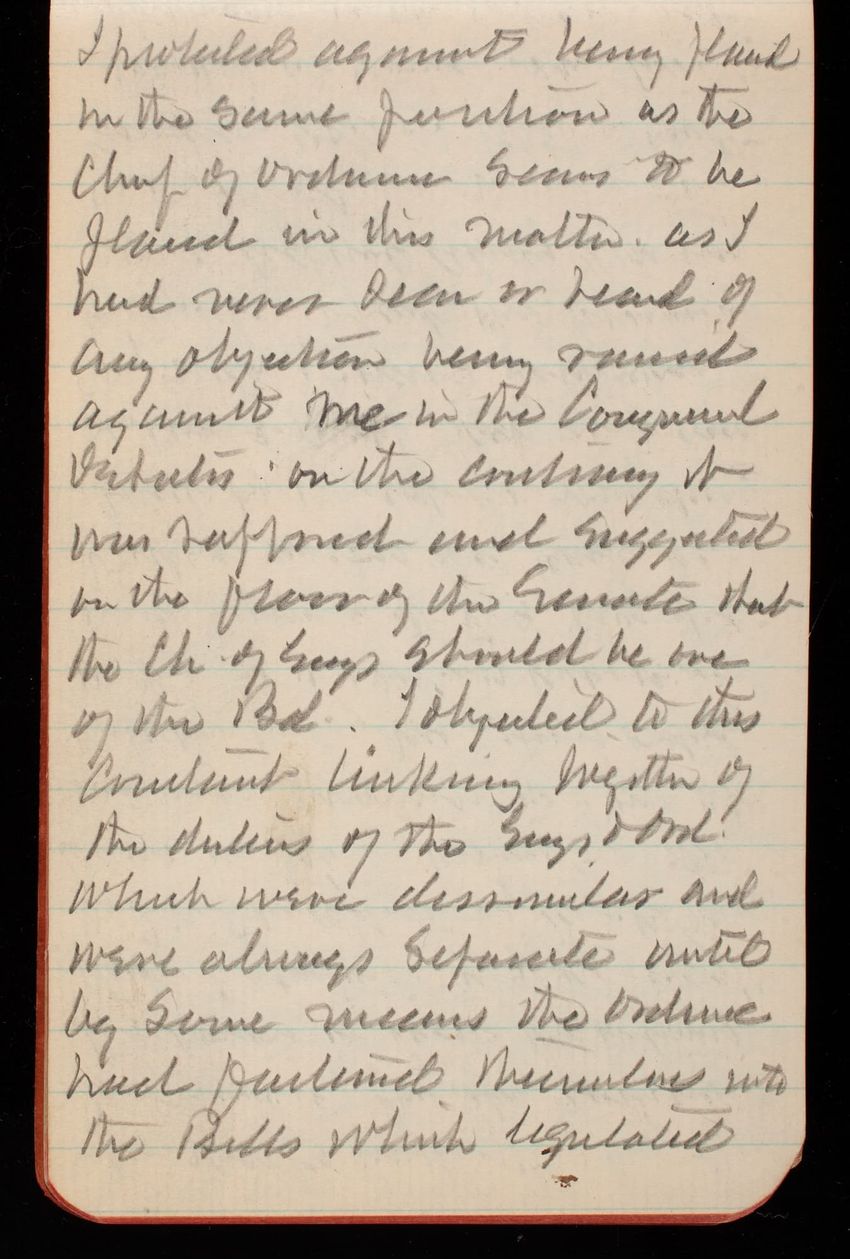 I protested against being placed
in the same position as the
Chief of Ordnance seems to be
placed in this matter. as I
had never seen or heard of
any objection being raised
against me in the Congressnl
Debates. on the contrary it
was supposed and suggested
on the floor of the Senate that
the Ch of Engs should be one
of the Bd. I objected to this
constant linking together of
the duties of the Engs & Ord.
which were dissimilar and
were always separate until
by some means the Ordnance
had fastened themselves into
the Bills which legislated